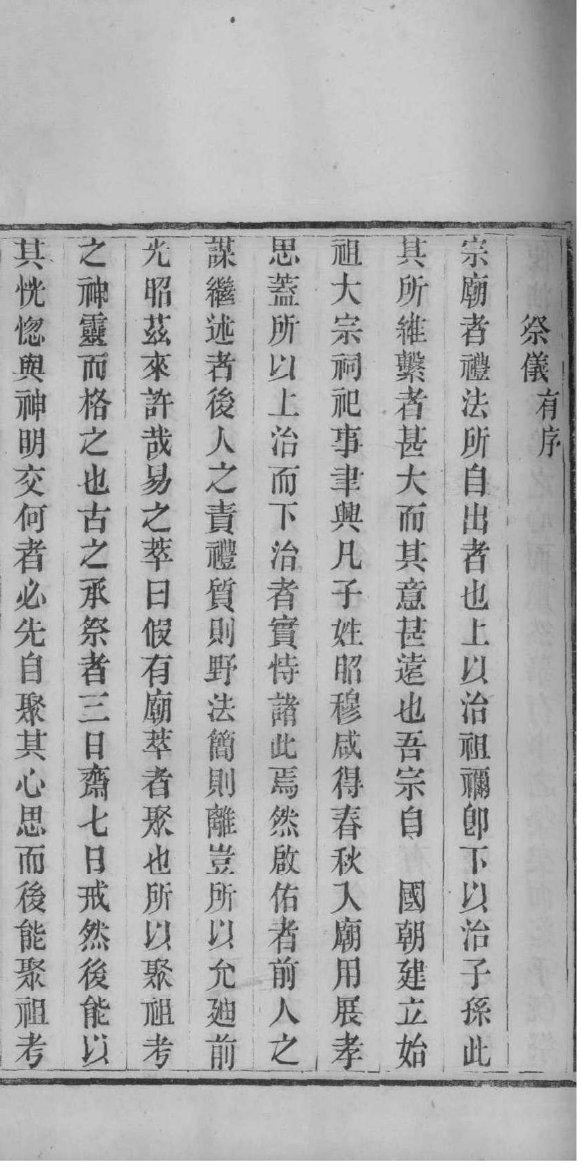 祭儀有序
宗廟者禮法所自出者也上以治祖禰卽下以治子孫此
其所維繫者甚大而其意甚遠也吾宗自　國朝建立始
祖大宗祠祀事聿興凡子姓昭穆咸得春秋入廟用展孝
思蓋所以上治而下治者實恃諸此焉然啟佑者前人之
謀繼述者後人之責禮質則野法簡則離豈所以允廸前
光昭茲來許哉易之萃曰假有廟萃者聚也所以聚祖考
之神靈而格之也古之承祭者三日齋七日戒然後能以
其恍惚與神明交何者必先自聚其心思而後能聚祖考